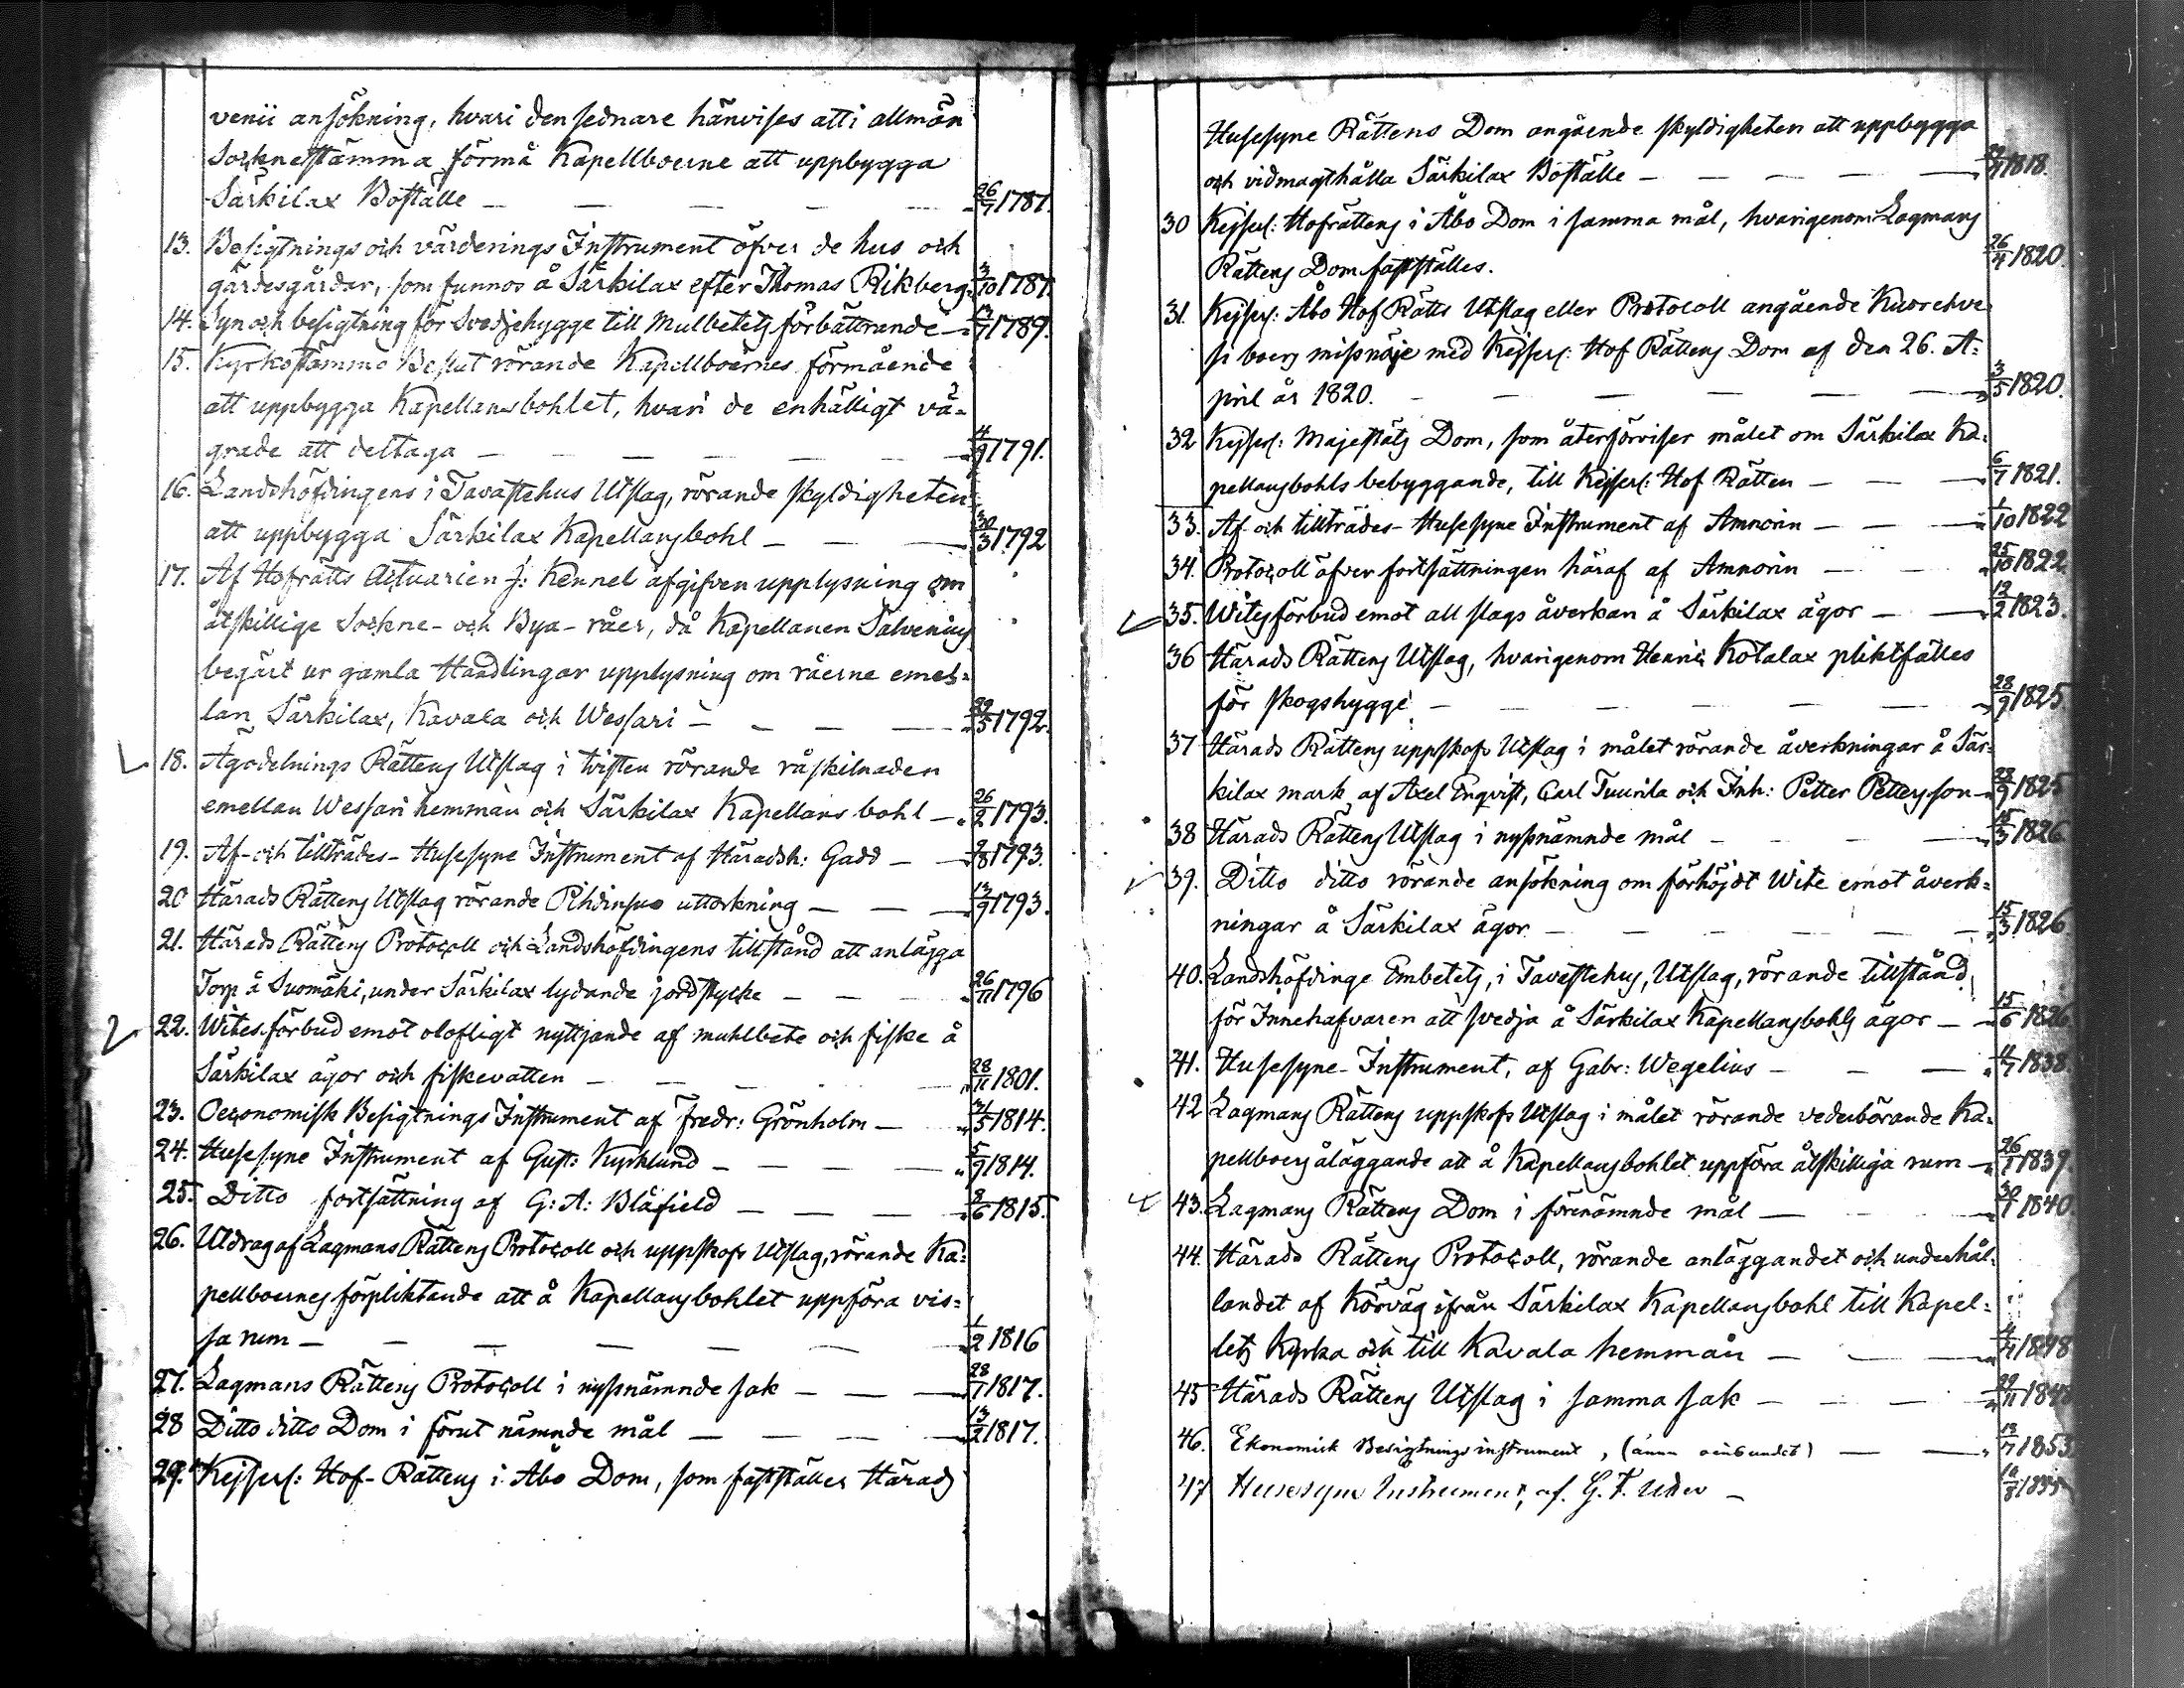 venii ansökning, hvari den sednare hänvises att i allmän
Sockne stämma förmå Kapellboerne att uppbygga
Särkilax Boställe — — — — — 26/7 1787.
13. Besigtnings och värderings Instrument öfver de hus och
gärdesgårdar, som funnos å Särkilax efter Thomas Rikberg 3/10 1787.
14. Syn och besigtning för Svedjehygge till Mulbetets förbättrande — 1789.
15. Kyrkostämmo Beslut rörande Kapellboernes förmående
att uppbygga Kapellansbohlet, hvari de enhälligt vä-
grade att deltaga — — — — — 4/9 1791.
16. Landshöfdingens i Tavastehus Utslag, rörande skyldigheten
att uppbygga Särkilax Kapellansbohl — — — 30/3 1792
17. Af Hofrätts Actuarien J: Kennel afgifven upplysning om
åtskillige Sockne- och Bya-råer, då Kapellanen Salvenius
begärt ur gamla Handlingar upplysning om råerne emel-
lan Särkilax, Kavala och Wessari — — — 29/5 1792.
18. Ägodelnings Rättens Utslag i tvisten rörande råskilnaden
emellan Wessari hemman och Särkilax Kapellans bohl — 26/2 1793.
19. Af- och tillträdes- Husesyne Instrument af Häradsh: Gadd — 1793.
20 Härads Rättens Utslag rörande Pihdinsuo uttorkning — — 13/9 1793.
21. Härads Rättens Protocoll och Landshöfdingens tillstånd att anlägga
Torp å Suomäki, under Särkilax lydande jordstycke — — 26/11 1796
22. Wites förbud emot olofligt nyttjande af muhlbete och fiske å
Särkilax ägor och fiskevatten — — — 28/11 1801.
23. Oeconomisk Besigtnings Instrument af Fredr: Grönholm — 31/5 1814.
24. Husesyne Instrument af Gust: Kyrklund — — — 5/9 1814.
25. Ditto fortsättning af G: A: Blåfield — — — 8/6 1815.
26. Utdrag af Lagmans Rättens Protocoll och uppskofs Utslag, rörande Ka-
pellboernes förpliktande att å Kapellansbohlet uppföra vis-
sa rum — — — — — 1/2 1816
27. Lagmans Rättens Protocoll i nyssnämnde sak — — — 28/1 1817.
28 Ditto ditto Dom i förut nämnde mål — — — 13/2 1817.
29. Kejserl: Hof-Rättens i Åbo Dom, som fastställer Härads
Husesyne Rättens Dom angående skyldigheten att uppbygga
och vidmagthålla Särkilax Boställe — — — — 1818.
30 Kejserl: Hofrättens i Åbo Dom i samma mål, hvarigenom Lagmans
Rättens Dom fastställes. 26/4 1820.
31. Kejserl: Åbo Hof Rätts Utslag eller Protocoll angående Kuorehve-
si boers missnöje med Kejserl: Hof Rättens Dom af den 26. A-
pril år 1820. — — — — — 3/5 1820.
32 Kejserl: Majestäts Dom, som återförviser målet om Särkilax Ka-
pellansbohls bebyggande, till Kejserl: Hof Rätten — — — 6/7 1821.
33. Af- och tillträdes- Husesyne Instrument af Amnorin — — — 1/10 1822
34. Protocoll öfver fortsättningen häraf af Amnorin — — 25/10 1822.
35. Witesförbud emot all slags åverkan å Särkilax ägor — — 12/2 1823.
36 Härads Rättens Utslag, hvarigenom Henric Kotalax pliktfälles
för skogshygge — — — — — 28/9 1825
37 Härads Rättens uppskofs Utslag i målet rörande åverkningar å Sär-
kilax mark af Axel Enqvist, Carl Tuurila och Inh: Petter Petersson — 28/9 1825
38 Härads Rättens Utslag i nyssnämnde mål — — — 15/3 1826
39. Ditto ditto rörande ansökning om förhöjdt Wite emot åverk-
ningar å Särkilax ägor — — — — — 15/3 1826
40. Landshöfdinge Embetets, i Tavastehus, Utslag, rörande tillstånd
för Innehafvaren att svedja å Särkilax Kapellansbohls ägor — 15/6 1826
41. Husesyne-Instrument, af Gabr: Wegelius — — — 1838
42 Lagmans Rättens uppskofs Utslag i målet rörande vederbörande Ka-
pellboers åläggande att å Kapellansbohlet uppföra åtskilliga rum — 26/1 1839.
43. Lagmans Rättens Dom i förenämnde mål — — — 1840.
44. Härads Rättens Protocoll, rörande anläggandet och underhål-
landet af Körväg ifrån Särkilax Kapellansbohl till Kapel-
lets Kyrka och till Kavala hemman — — — 1848
45 Härads Rättens Utslag i samma sak — — — 1848
46. Ekonomisk Besigtnings instrument, (ännu oinbundet) — — 1853
47 Husesyne Instrument, af. G. F. —